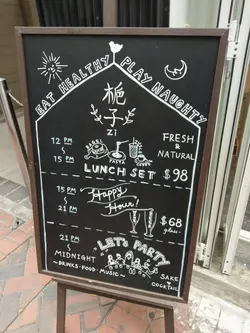 EAT HEALTHY PLAY NAUGHTY
梔
子
Zi
12 PM
~
15 PM
PASTA
FRESH
&
NATURAL
LUNCH SET $98
15 PM
~
21 PM
Happy
Hour!
$68
glass
21 PM
~
MIDNIGHT
LET'S PARTY!
~DRINKS·FOOD·MUSIC~
SAKE
COCKTAIL